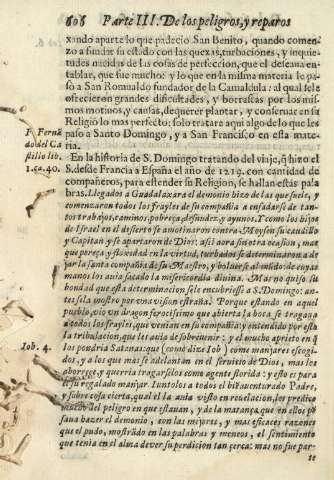 606 Parte III. De los peligros, y reparos
xando aparte lo que padecio San Benito, quando comen-
zo a fundar su estado con las quexas, turbaciones, y inquie-
tudes nacidas de las cosas de perfeccion, que el deseaua en-
tablar, que fue mucho: y lo que en la misma materia le pa-
so a San Romualdo fundador de la Camaldula; al qual se le
ofrecieron grandes dificultades, y borrascas por los mis-
mos motiuos, y causas, de querer plantar, y conseruar en su
Religiõ lo mas perfecto: solo tratare aqui algo de lo que les
paso a Santo Domingo, y a San Francisco en esta mate-
ria.
F. Ferna
do del Ca
stillo lib.
1. ca. 40.
En la historia de S. Domingo tratando del viaje, q̃ hizo el
S. desde Francia a España el año de 1219. con cantidad de
compañeros, para estender su Religion, se hallan estas pala-
bras. Llegados a Guadalaxara el demonio hizo de las que suele, y
comenzaron todos los frayles de su compañia a enfadarse de tan-
tos trabajos, caminos, pobreza, desnudez, y ayunos. Y como los hijos
de Israel en el desierto se amotinaron contra Moysen su caudillo
y Capitan y se apartaron de Dios: asi aora en otra ocasion, mas
que pereza, y floxedad en la virtud, turbados se determinaron a de
jar la santa compañia de su Maestro, y boluerse al mundo: de cuyas
manos los auia sacado la misericordia diuina. Mas no quiso su
bondad que esta determinacion se le encubriese a S. Domingo: an-
tes se la mostro por una vision estraña. Porque estando en aquel
pueblo, vio un dragon ferocisimo que abierta la boca se tragaua
a todos los frayles, que venian en su compañia: y entendido por esta
la tribulacion, que les auia de sobreuenir: y el mucho aprieto en q̃
Iob. 4.
los pondria Satanas: que (como dize Iob) come manjares escogi-
dos, y a los que mas se adelantan en el seruicio de Dios, mas los
aborrece, y querria tragarselos como agente florida: y esto es para
el su regalado manjar. Iuntolos a todos el bienauenturado Padre,
y sobre cosa cierta, qual el la auia visto en reuelacion, les predico
del peligro en que estauan, y de la matança, que en ellos pē
saua hazer el demonio, con las mejores, y mas eficaces razones
que el pudo, mostrãdo en las palabras y meneos, el sentimiento
que tenia en el alma de ver su perdicion tan cerca: mas no fue par-
te